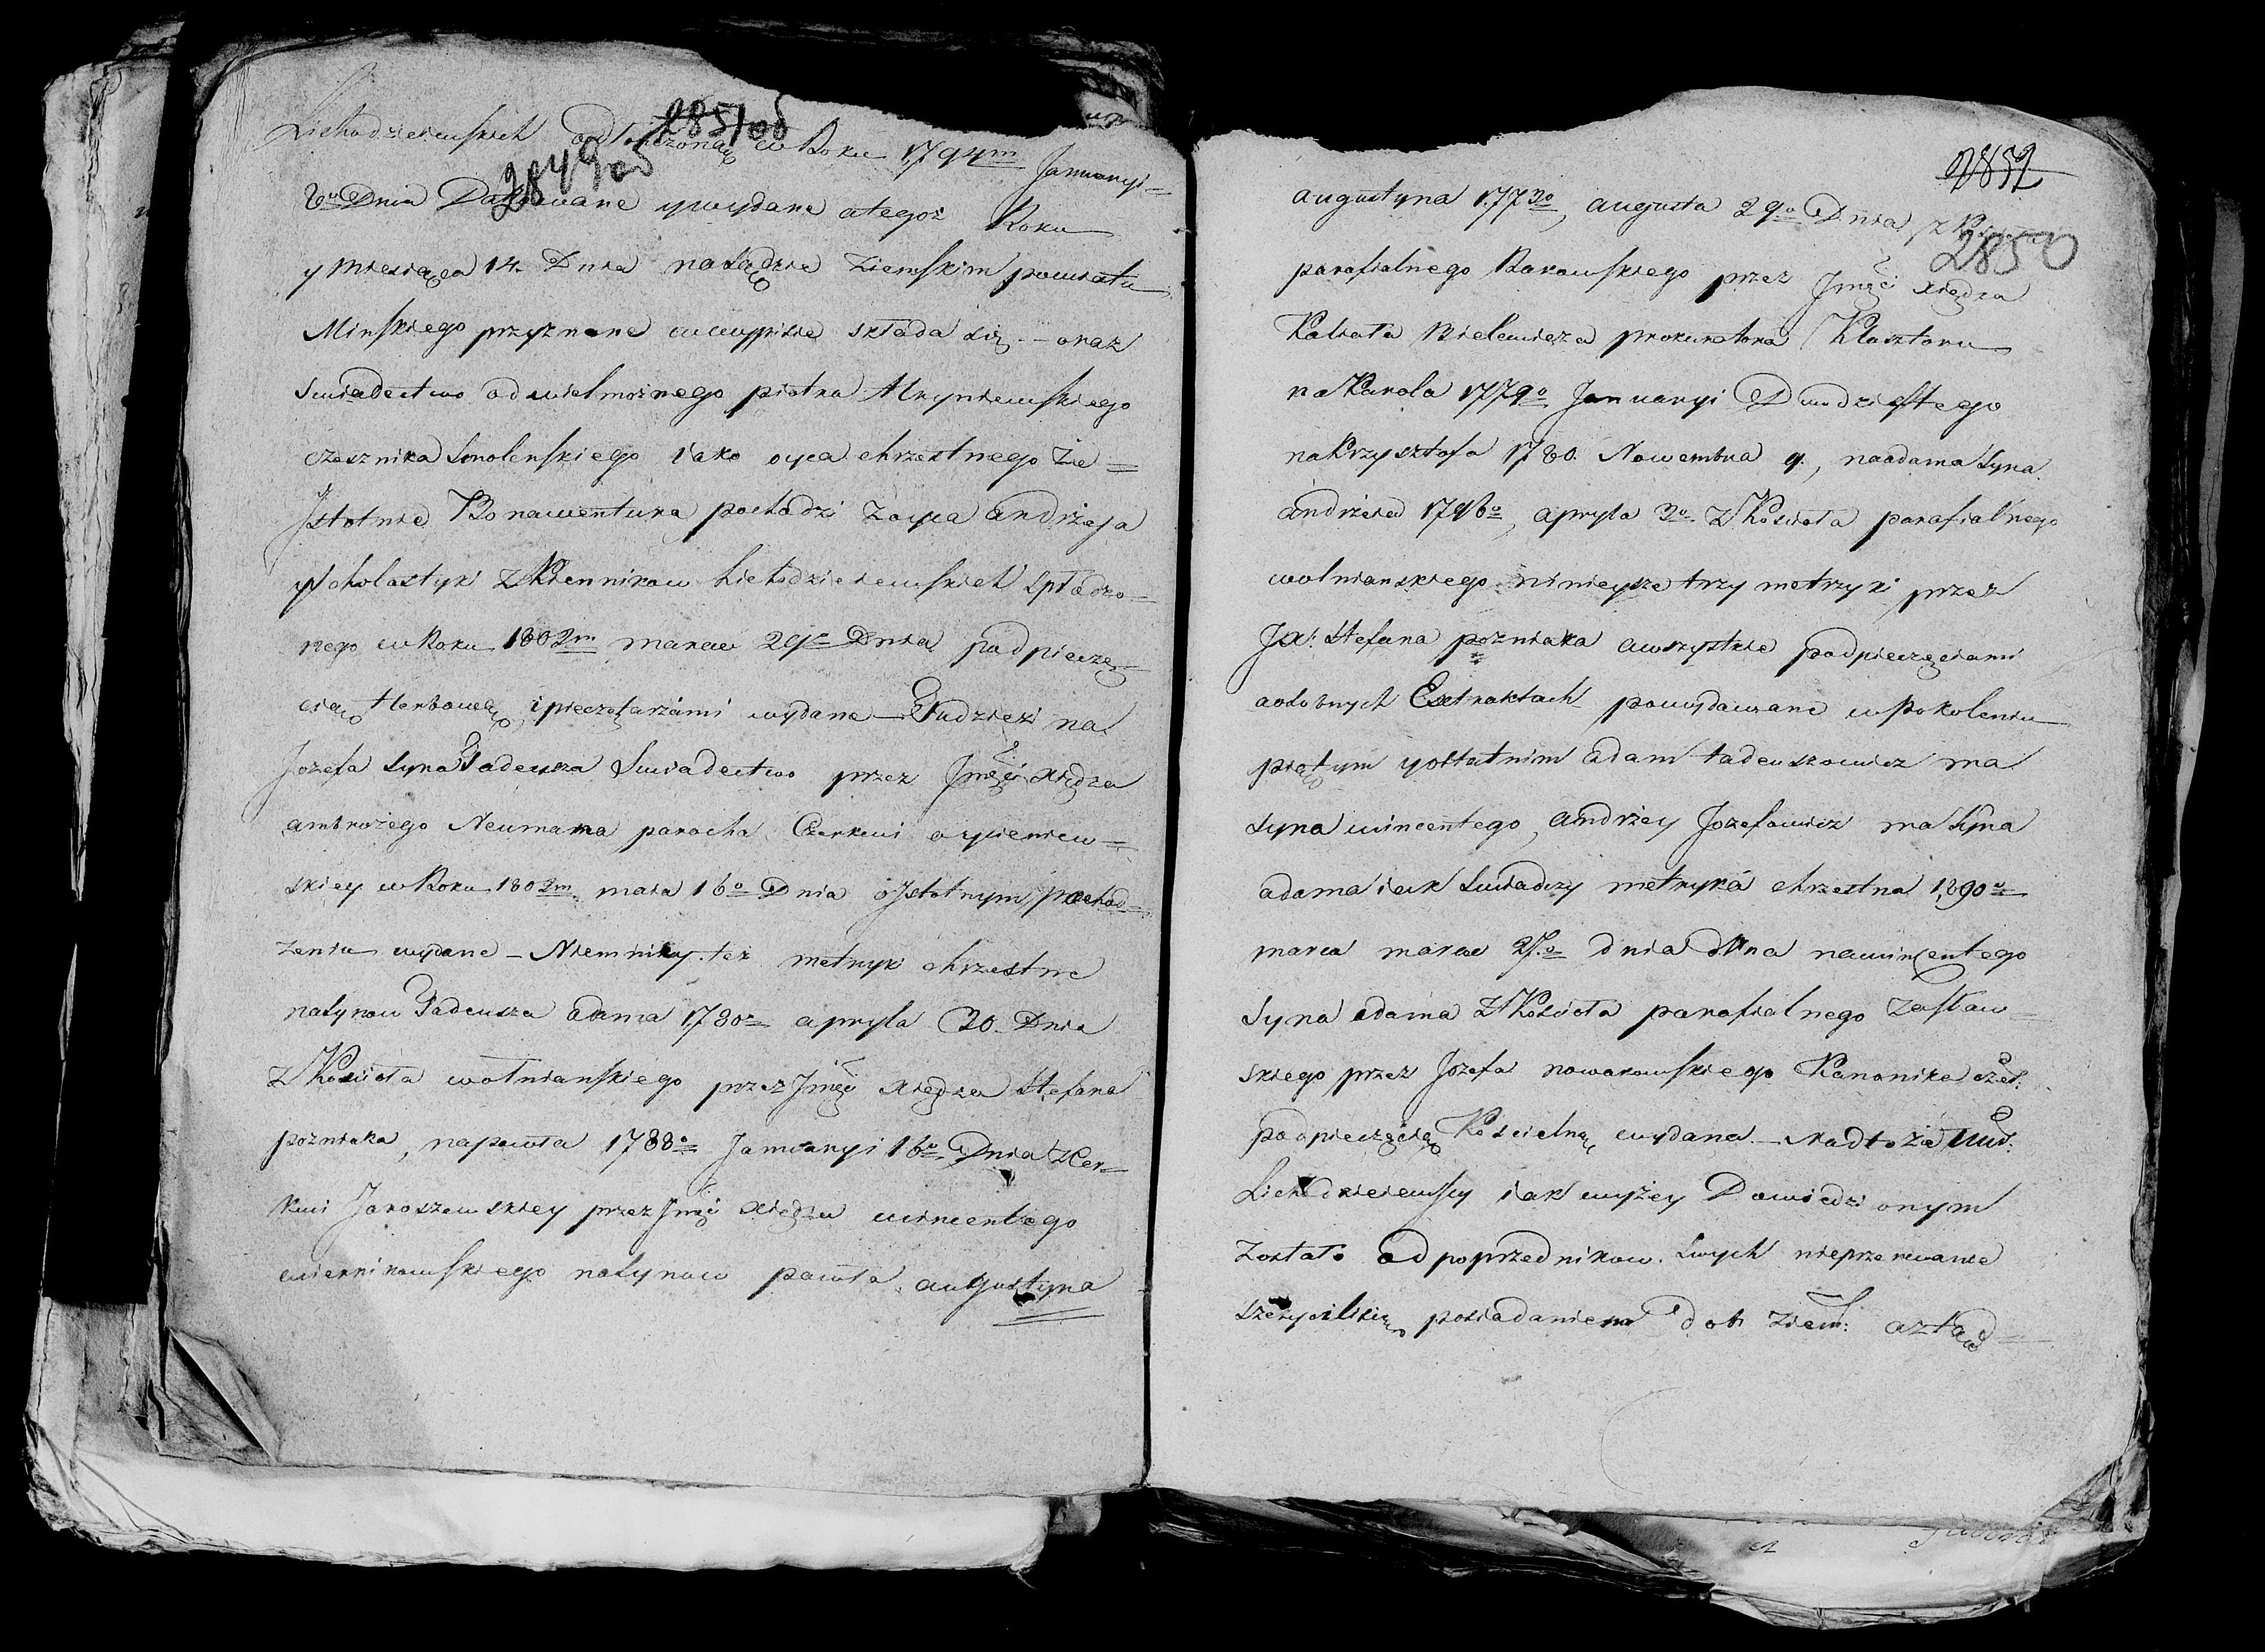 2851 об
Lichodzieiewskich odTończoną w Roku 1794m Januaryi =
2849 об
8o Dnia Datowane y wydane a tegoż Roku
y Miesiąca 14. Dnia na Sądzie Ziemskim powiatu
Minskiego przyznane w wypisie składa się. — oraz
Swiadectwo od wielmożnego piotra Mryniewskiego
czesznika Smolenskiego iako oyca chrzestnego że =
Jstotnie Bonawentura pochodzi z oyca andrzeja
y Scholastyki z Kiennikow Lichodzieiewskich spłodzo =
nego w Roku 1802m marca 29o Dnia pod pieczę =
cią Herbową i pieczętarzami wydane — Tudzież na
Jozefa syna Tadeusza Swiadectwo przez Jmści xiędza
ambrożego Neumana parocha Cerkwi
skiey w Roku 1802m maia 16o Dnia o Jstotnym pochod =
zeniu wydane — Niemniey też metryki chrzestne
na synow Tadeusza adama 1780o apryla 30. Dnia
z Kościoła wołnianskiego przez Jmści xiędza Stefana
pozniaka, na pawła 1788o Januaryi 16o Dnia z Cer =
kwi Jaroszewskiey przez Jmści xiędza wincentego
wiernikowskiego na synow pawła augustyna
2852
augustyna 1773o, augusta 29o Dnia, z
2850
parafialnego Rakowskiego przez Jmści xiędza
Kalixta Bielewicza prokuratora Klasztoru
na Karola 1779o Januaryi Dwudziestego
na Krzysztofa 1780. Nowembra 9., na adama syna
andrzeia 1796o, apryla 3o z Kościoła parafialnego
wołnianskiego ninieysze trzy metryki przez
JX: Stefana pozniaka a wszystkie pod pieczęciami
w osobnych Extraktach powydawane w pokoleniu
piątym y ostatnim adam tadeuszowicz ma
syna wincentego, andrzey Jozefowicz ma syna
adama iak swiadczy metryka chrzestna 1790o
marca marca 27.o dnia na wincentego
syna adama z Kościoła parafialnego zasław =
skiego przez Jozefa nowakowskiego Kanonika
pod pieczęcią Kościelną wydana. — Nadto że Uur:
Lichodzieiewscy iak wyżey Dowiedzionym
zostało od poprzednikow swych nieprzerwanie
szczycili się posiadaniem dob: Ziem: a ztąd =